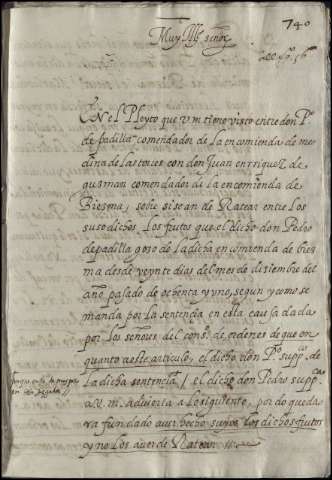 740
Muy Ill.e señor
En el Pleyto que v m tiene visto entre don P.o
de padilla comendador de la encomienda de me
dina de las torres con don Juan enrriquez de
guzman comendador de la encomienda de
Biezma, sobre si se an de Ratear entre los
suso dichos, los frutos que el dicho don Pedro
de padilla gozo de la dicha encomienda de biez
ma desde veynte dias del mes de diziembre del
año pasado de ochenta y vno, segun y como se
manda por la sentencia en esta causa dada
por los señores del cons.o de ordenes de que en
quanto a este articulo, el dicho don P.o supp.co de
la dicha sentencia / el dicho don Pedro supp.ca
a v. m. advierta a lo siguiente, por do queda
ra fundado aver hecho suyos los dichos frutos
y no los aver de Ratear